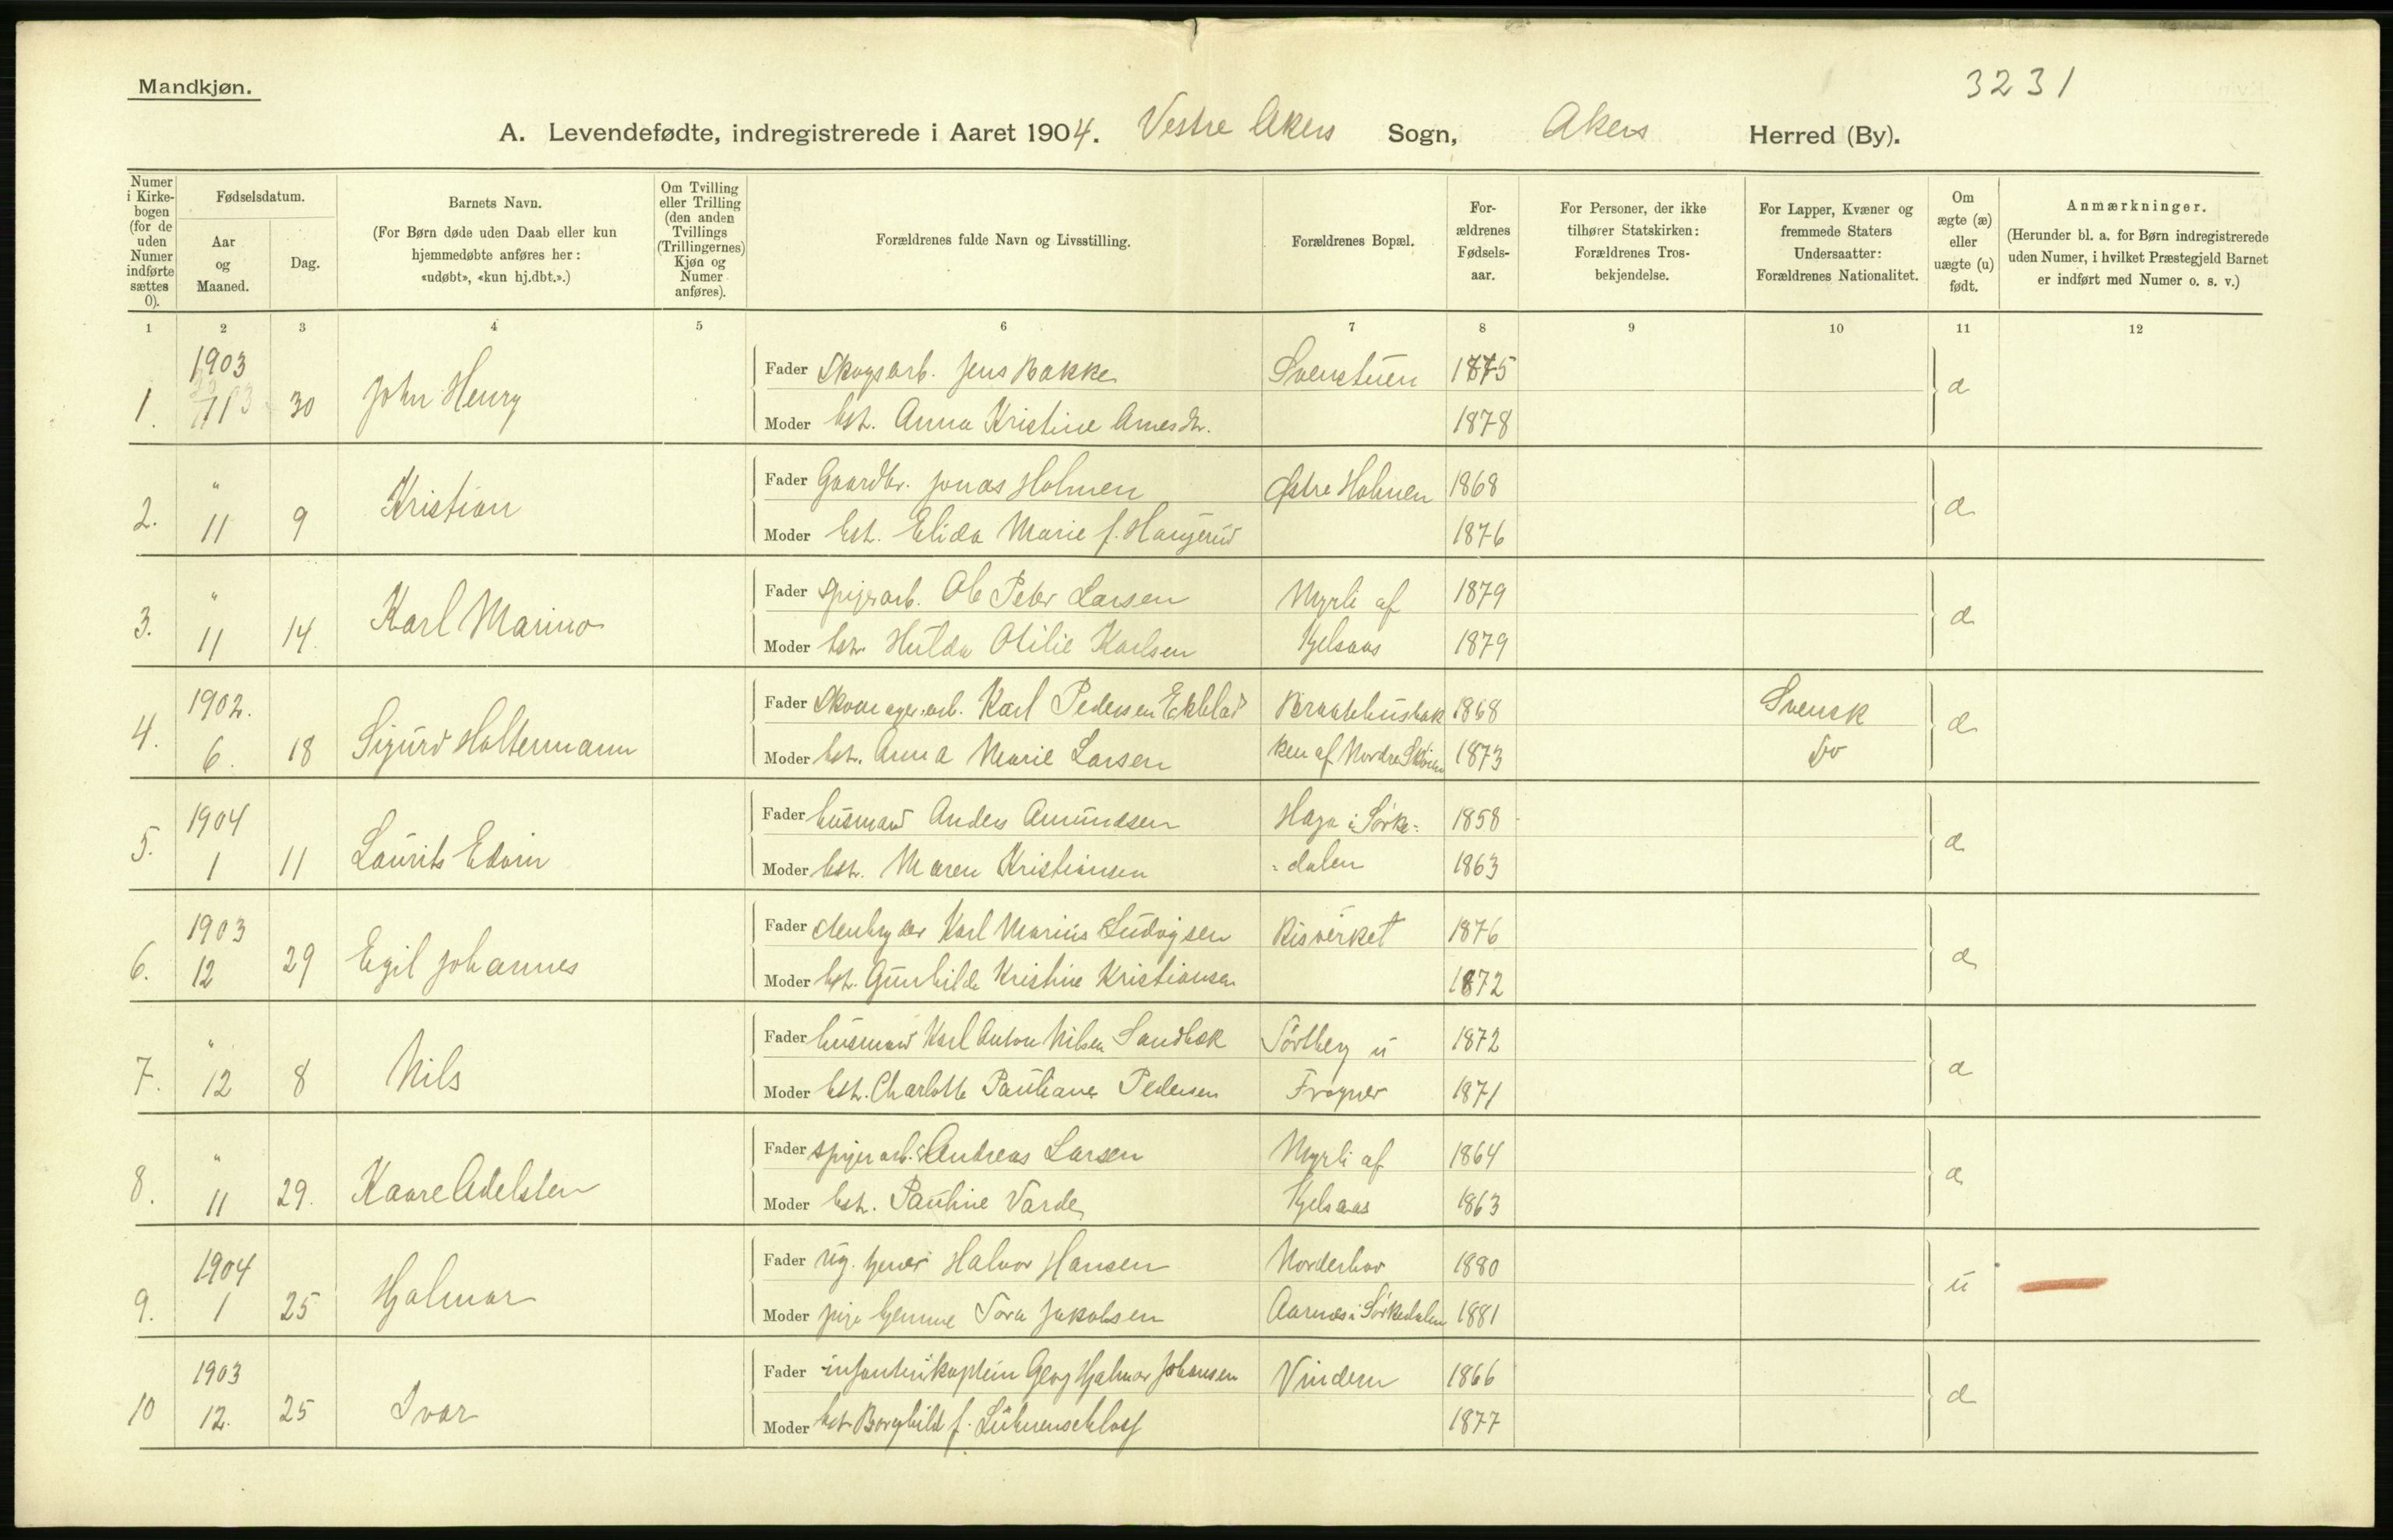 Mandkjøn.
3231
A. Levendefødte, indregistrerede i Aaret 1904. Vestre Akers Sogn, Akers Herred (By).
Numer i Kirkebogen (for de uden Numer indførte sættes 0).
Fødselsdatum.
Aar og Maaned.
Dag.
Barnets Navn.
(For Børn døde uden Daab eller kun hjemmedøbte anføres her: «udøbt», «kun hj.dbt.».)
Om Tvilling eller Trilling (den anden Tvillings (Trillingernes) Kjøn og Numer anføres).
Forældrenes fulde Navn og Livsstilling.
Forældrenes Bopæl.
Forældrenes Fødselsaar.
For Personer, der ikke tilhører Statskirken: Forældrenes Trosbekjendelse.
For Lapper, Kvæner og fremmede Staters Undersaatter: Forældrenes Nationalitet.
Om ægte (æ) eller uægte (u) født.
Anmærkninger.
(Herunder bl. a. for Børn indregistrerede uden Numer, i hvilket Præstegjeld Barnet er indført med Numer o. s. v.)
1 2 3 4 5 6 7 8 9 10 11 12
1903 Fader Skogsarb. Jens Bakke Svenstuen 1875
1. 11 30 John Henry æ
Moder hst. Anna Kristine 1878
" Fader Gaardbr. Jonas Holmen Østre Holmen 1868
2. 11 9 Kristian æ
Moder hst. Elida Marie f. 1876
" Fader spigerarb. Ole Peter Larsen Myrli af 1879
3. 11 14. Karl Marino æ
Moder hst. Hulda Otilie Karlsen Kjelsaas 1879
1902. Fader Karl Pedersen Ekblad 1868 Svensk
4. 6. 18 Sigurd Holtermann æ
Moder hst. Anna Marie Larsen ken af Nordre Skøien 1873 Do
1904 Fader husmand Anders Amundsen Haga i Sørke- 1858
5. 1 11 Laurits Edvin æ
Moder hst. Maren Kristiansen -dalen 1863
1903 Fader Karl Marius Ludvigsen Bisværket 1876
6. 12 29 Egil Johannes æ
Moder hst. Gunhilde Kristine Kristiansen 1872
" Fader husmand Karl Anton Nilsen Sandbæk Sørberg u 1872
7. 12 8 Nils æ
Moder hst. Charlotte Pauliane Pedersen Frogner 1871
" Fader spigerarb. Andreas Larsen Myrli af 1864
8. 11 29. Kaare Adelsten æ
Moder hst. Pauline Varde Kjelsaas 1863
1904 Fader ug. Halvor Hansen Norderhov 1880
9. 1 25 Hjalmar u
Moder pige hjemme Tora Jakobsen Aarnæs i Sørkedalen 1881
1903 Fader infanterikaptein Georg Hjalmar Johansen Vindern 1866
10 12. 25 Ivar æ
Moder hst. Borghild f. 1877